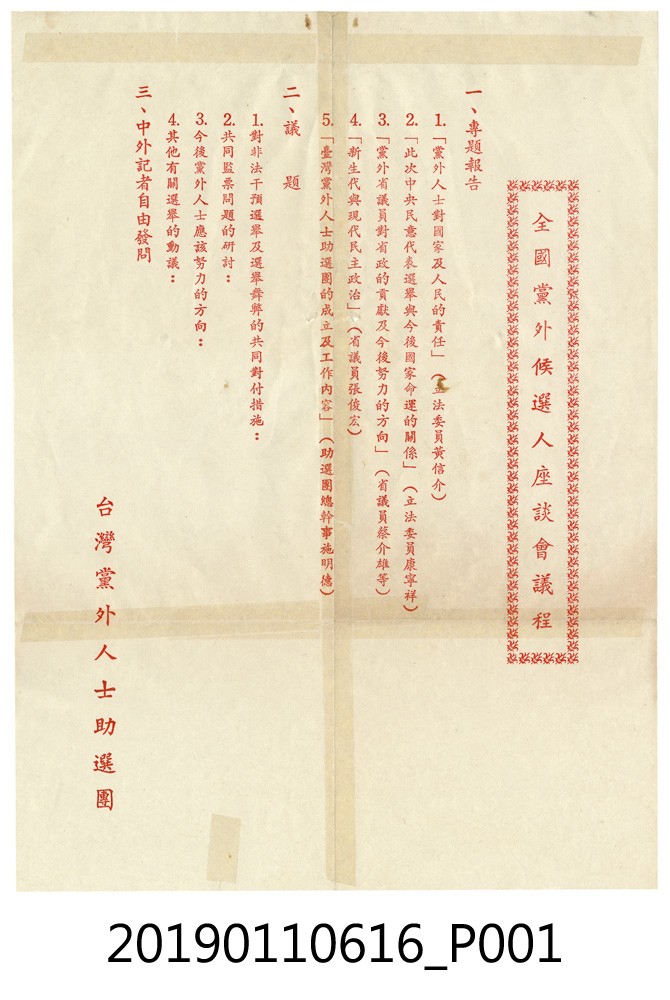 全國黨外候選人座談會議程
一、專題報告
1.「黨外人士對國家及人民的責任」(立法委員黃信介)
2.「此次中央民意代表選舉與今後國家命運的關係」(立法委員康寧祥)
3.「黨外省議員對省政的貢獻及今後努力的方向」(省議員蔡介雄等)
4.「新生代與現代民主政治」(省議員張俊宏)
5.「臺灣黨外人士助選團的成立及工作內容」(助選團總幹事施明德)
二、議 題
1.對非法干預選舉及選舉舞弊的共同對付措施:
2.共同監票問題的研討:
3.今後黨外人士應該努力的方向:
4.其他有關選舉的動議:
三、中外記者自由發問
台灣黨外人士助選團
20190110616_P001